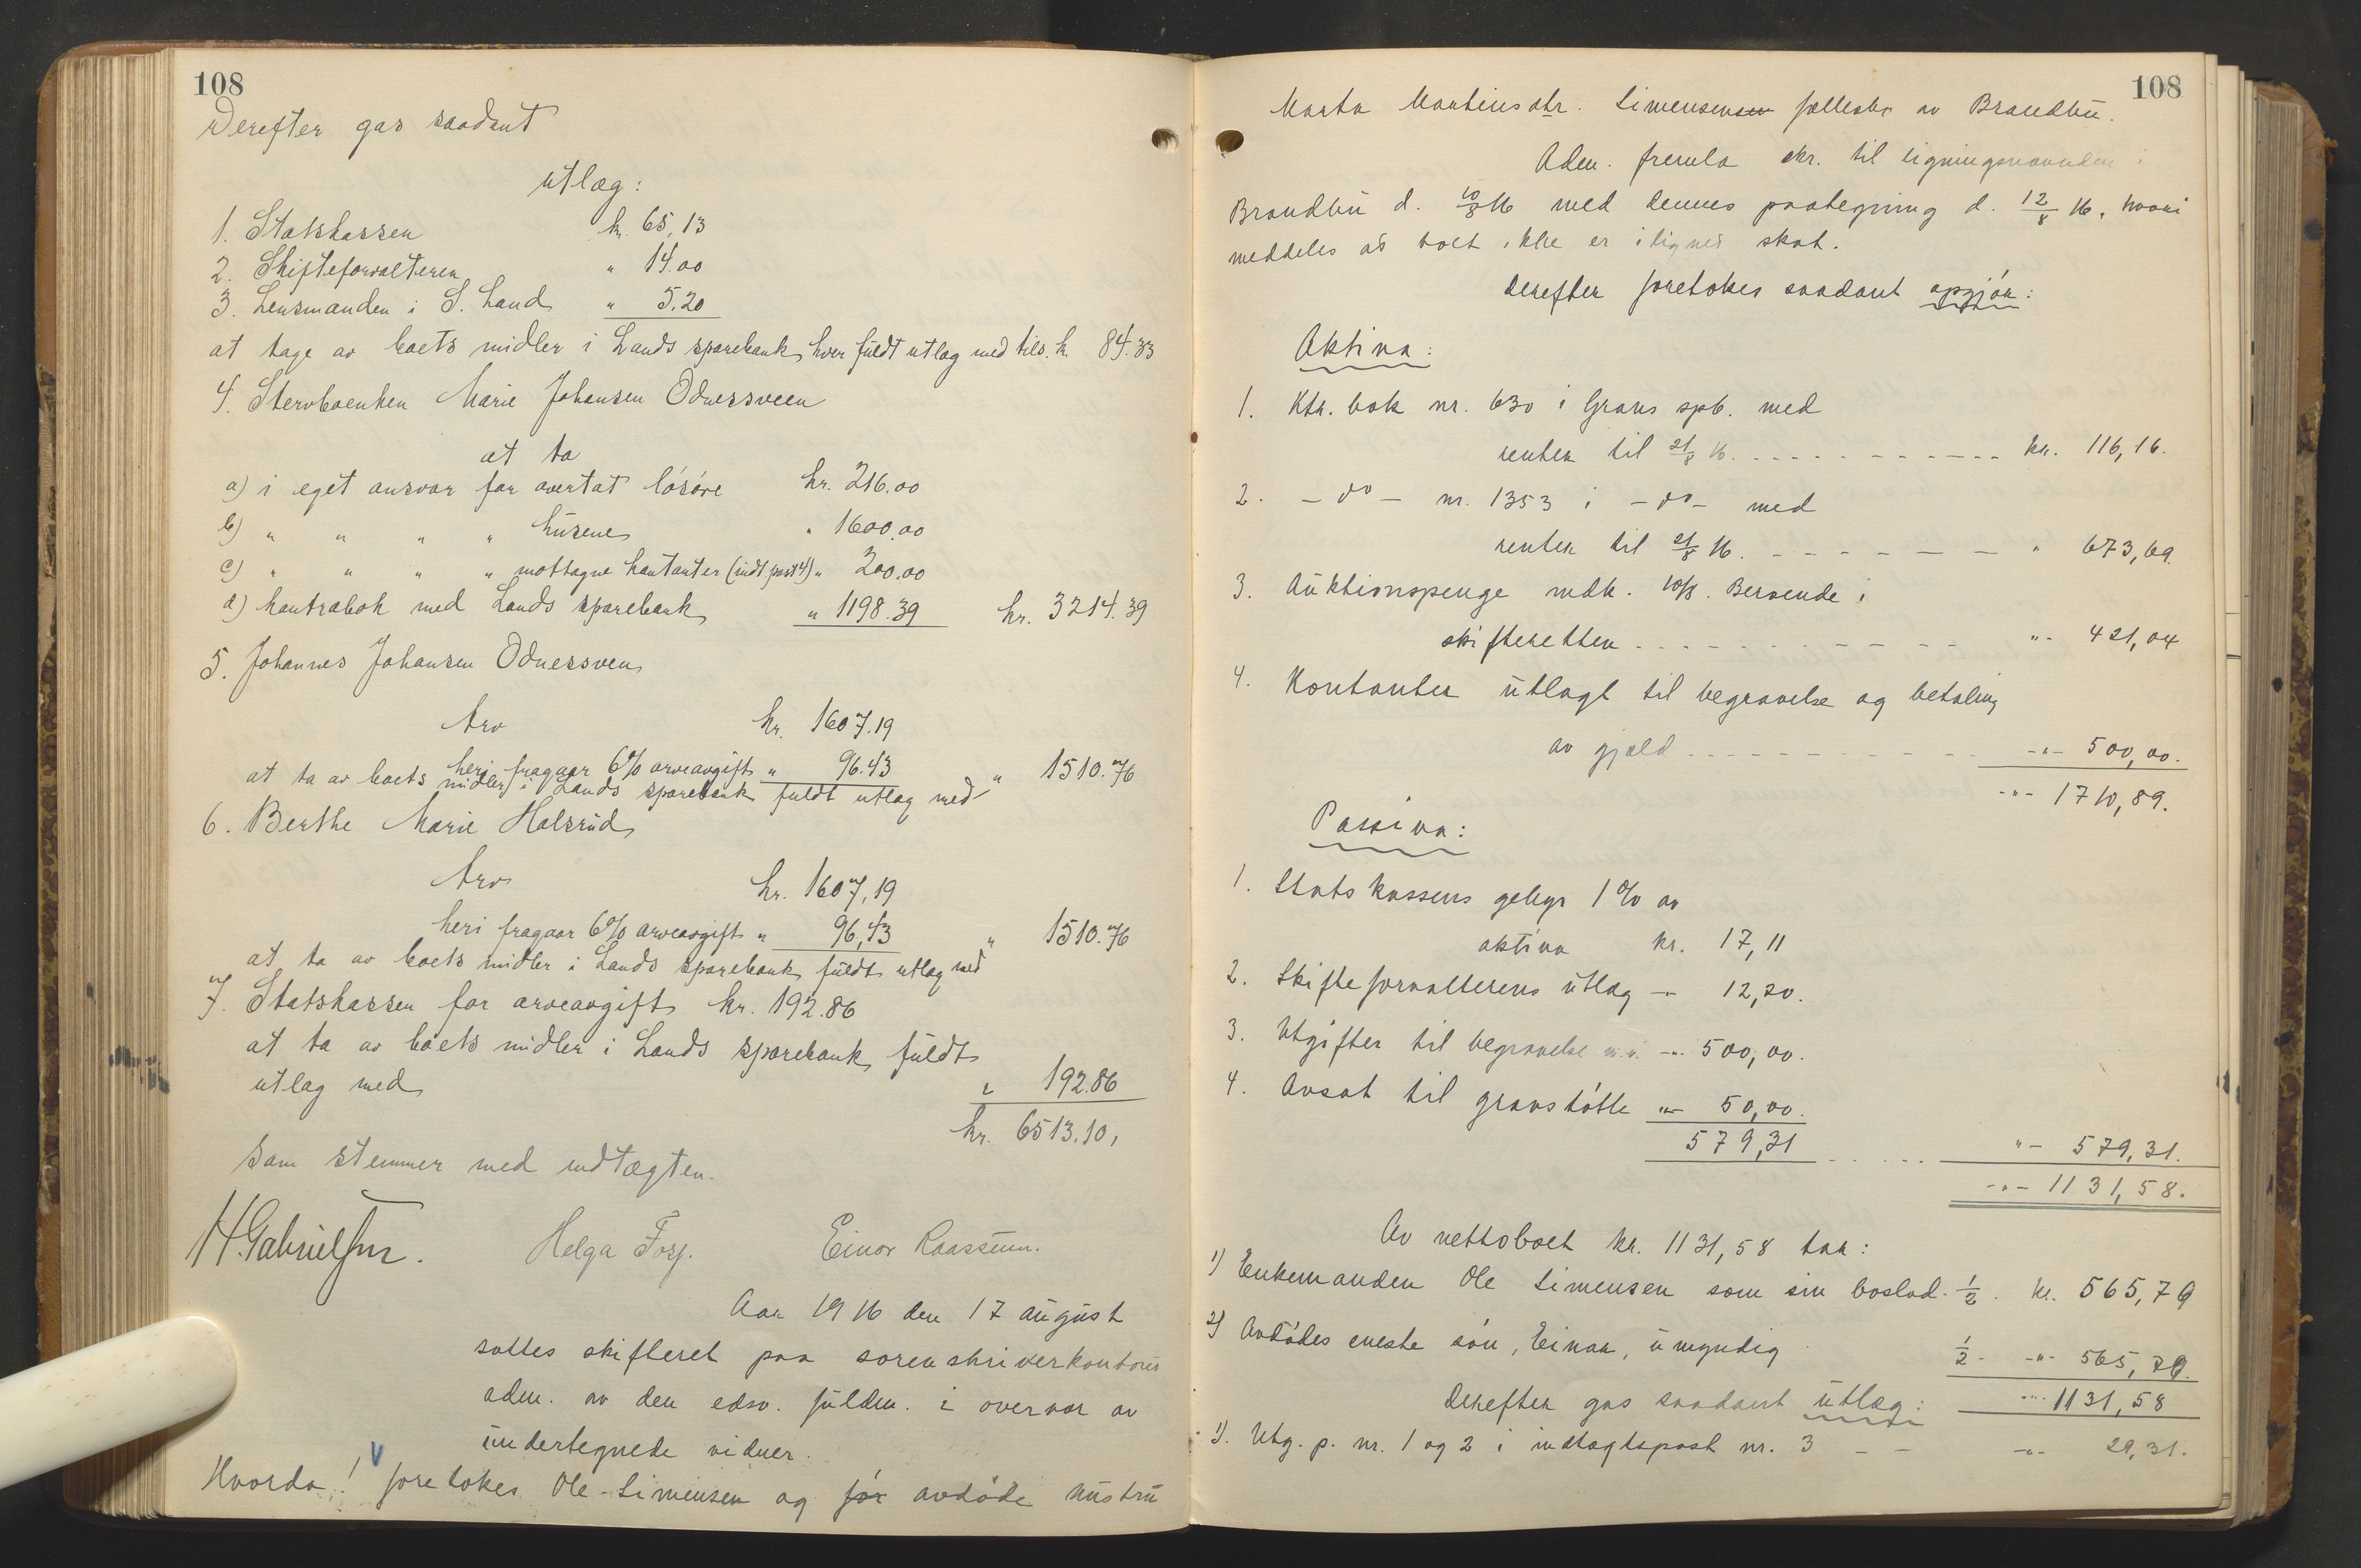 108
Derefter gas saadant
utlæg:
1. Statskassen kr. 65,13
2. Skifteforvalteren " 14.00
3. Lensmanden i S. Land " 5.20
at tage av boets midler i Lands sparebank hver fuldt utlæg med tils. kr. 84.33
4. Stervboenken Marie Johansen Odnessveen
at ta
a) i eget ansvar for overtat lösöre kr. 216.00
b) " " " " husene " 1600.00
c) " " " " mottagne kontanter (indt. post 4) " 200.00
d) kontrabok med Lands sparebank " 1198.39 kr. 3214.39
5. Johannes Johansen Odnessveen
Arv kr. 1607.19
heri fragaar 6% arveavgift " 96.43
at ta av boets midler i Lands sparebank fuldt utlæg med " 1510.76
6. Berthe Marie Halsrud
Arv kr. 1607,19
heri fragaar 6% arveavgift " 96,43
at ta av boets midler i Lands sparebank fuldt utlæg med " 1510.76
7. Statskassen for arveavgift kr. 192.86
at ta av boets midler i Lands sparebank fuldt
utlæg med " 192.86
kr. 6513.10,
Som stemmer med indtægten.
H. Gabrielsen. Helga Fosj. Einar Raassum.
Aar 1916 den 17 august
sattes skifteret paa sorenskriverkontoret
adm. av den edsv. fuldm. i overvær av
undertegnede vidner.
Hvorda! foretokes Ole Simensen og før avdöde hustru
108
Marta Martinsdtr. Simensens fællesbo av Brandbu.
Adm. fremla skr. til ligningsnævnden i
Brandbu d. 10/8 16 med dennes paategning d. 12/8 16, hvori
meddeles at boet ikke er ilignet skat.
Derefter foretokes saadant opgjör:
Aktiva:
1. Ktr. bok nr. 630 i Grans spb. med
renter til 21/8 16. kr. 116,16.
2. - do - nr. 1353 i - do - med
renter til 21/8 16. - " 673,69.
3. Auktionspenge indk. 10/8. Beroende i
skifteretten " - 421,04
4. Kontanter utlagt til begravelse og betaling
av gjæld - " - 500,00.
- " - 1710,89.
Passiva:
1. Statskassens gebyr 1% av
aktiva kr. 17,11
2. Skifteforvalterens utlæg - " 12,20.
3. Utgifter til begravelse m.v. - " 500,00.
4. Avsat til gravstötte " - 50,00.
579,31 " - 579,31.
- " - 1131,58.
Av nettoboet kr. 1131,58 tar:
1) Enkemanden Ole Simensen som sin boslod 1/2. kr. 565,79
2) Avdödes eneste sön, Einar, umyndig 1/2 - " - 565,79.
- " - 1131,58
Derefter gas saadant utlæg:
1). Utg. p. nr. 1 og 2 i indtægtspost nr. 3 - - - " - 29,31.